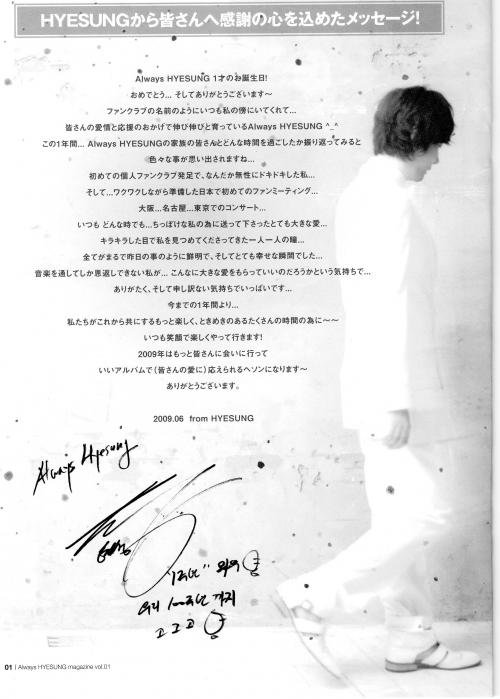 HYESUNGから皆さんへ感謝の心を込めたメッセージ!
Always HYESUNG 1才のお誕生日!
おめでとう... そしてありがとうございます〜
ファンクラブの名前のようにいつも私の傍にいてくれて...
皆さんの愛情と応援のおかげで伸び伸びと育っているAlways HYESUNG ^_^
この1年間... Always HYESUNGの家族の皆さんとどんな時間を過ごしたか振り返ってみると
色々な事が思い出されますね...
初めての個人ファンクラブ発足で、なんだか無性にドキドキした私...
そして...ワクワクしながら準備した日本で初めてのファンミーティング...
大阪...名古屋...東京でのコンサート...
いつも どんな時でも...ちっぽけな私の為に送って下さったとても大きな愛...
キラキラした目で私を見つめてくださってきた一人一人の瞳...
全てがまるで昨日の事のように鮮明で、そしてとても幸せな瞬間でした...
音楽を通してしか恩返しできない私が... こんなに大きな愛をもらっていいのだろうかという気持ちで...
ありがたく、そして申し訳ない気持ちでいっぱいです...
今までの1年間より...
私たちがこれから共にするもっと楽しく、ときめきのあるたくさんの時間の為に〜〜
いつも笑顔で楽しくやって行きます!
2009年はもっと皆さんに会いに行って
いいアルバムで(皆さんの愛に)応えられるヘソンになります〜
ありがとうございます。
2009.06 from HYESUNG
Always Hyesung
혜성
"1주년" 와우
우리 100주년 까지
고고고
01 | Always HYESUNG magazine vol.01